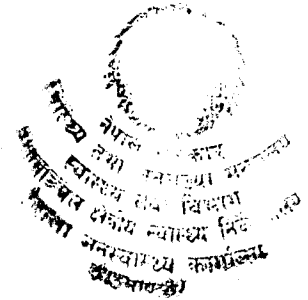 नेपाल सरकार
स्वास्थ्य तथा जनसंख्या मन्त्रालय
स्वास्थ्य सेवा विभाग
मध्यमाञ्चल क्षेत्रीय स्वास्थ्य निर्देशनालय
जिल्ला जनस्वास्थ्य कार्यालय
काठमाण्डौ